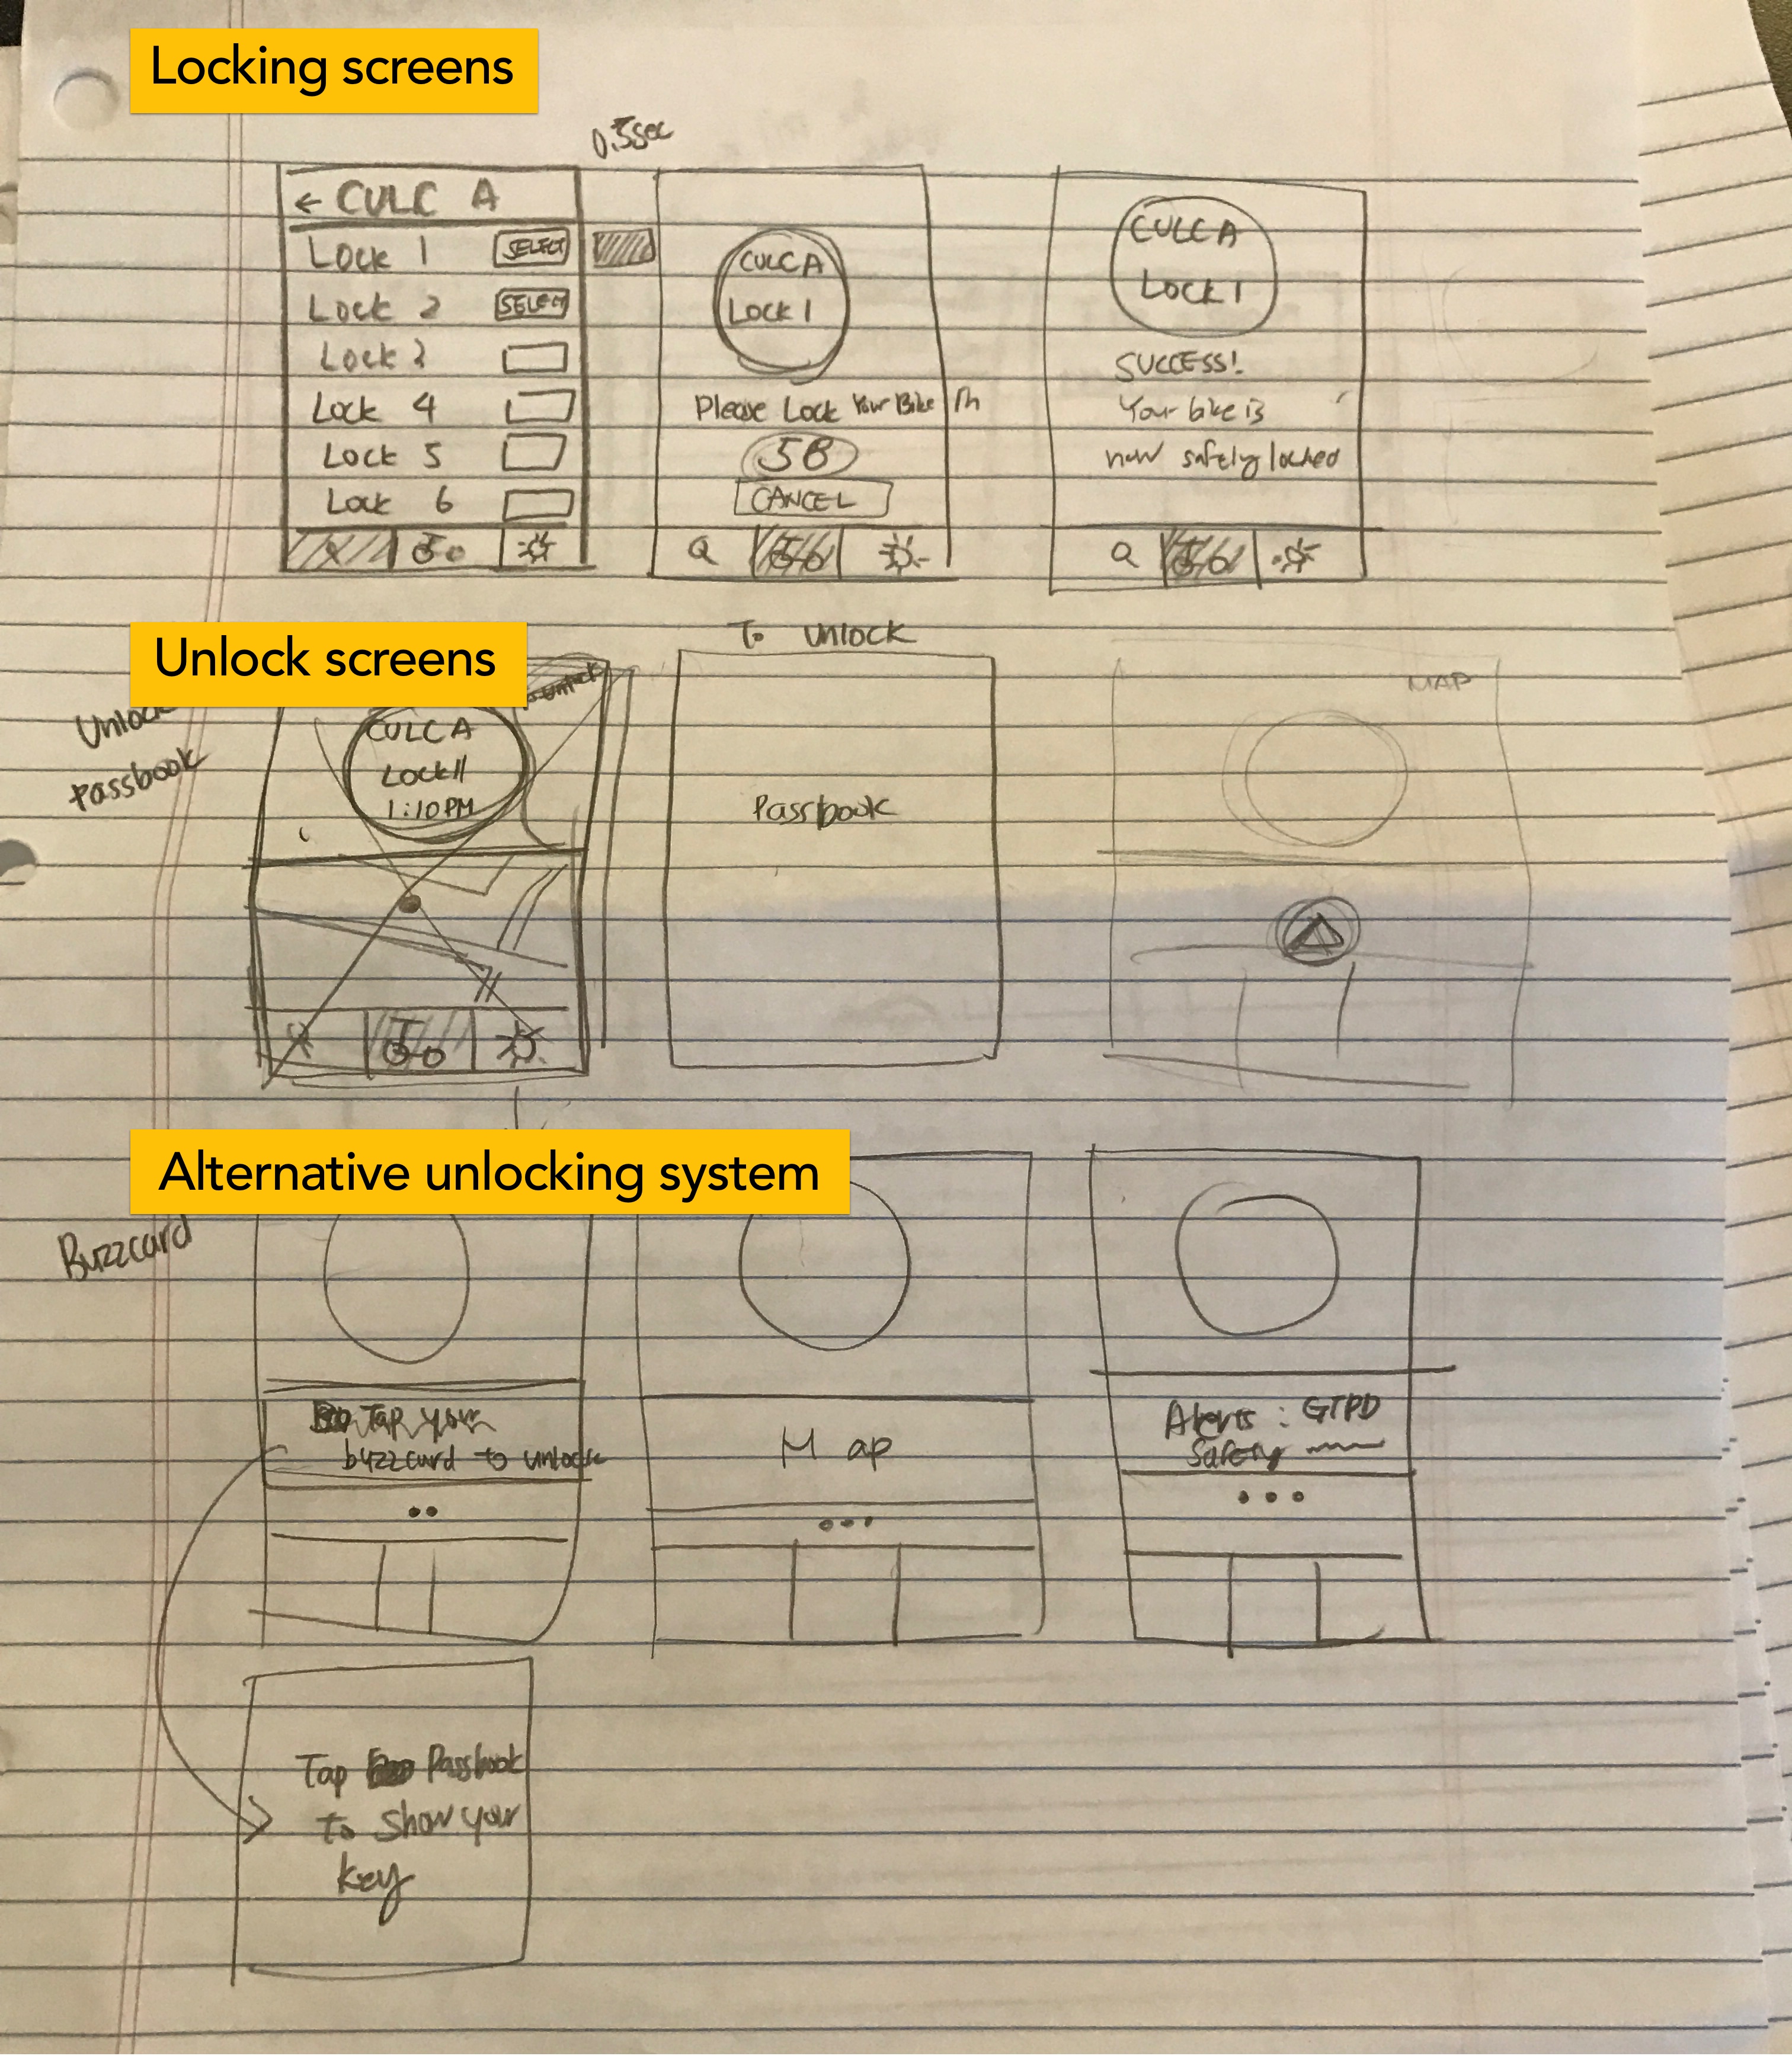 Locking screens
0.5sec
← CULC A
Lock 1 SELECT
Lock 2 SELECT
Lock 3
Lock 4
Lock 5
Lock 6
CULC A
LOCK 1
Please Lock Your Bike In
58
CANCEL
CULC A
LOCK 1
SUCCESS!
Your bike is
now safely locked
Unlock screens
Unlock
Passbook
unlock
CULC A
LOCK 11
1:10PM
To unlock
Passbook
MAP
Alternative unlocking system
Buzzcard
Tap your
buzzcard to unlock
Map
Alerts: GTPD
Safety
Tap Passbook
to show your
key